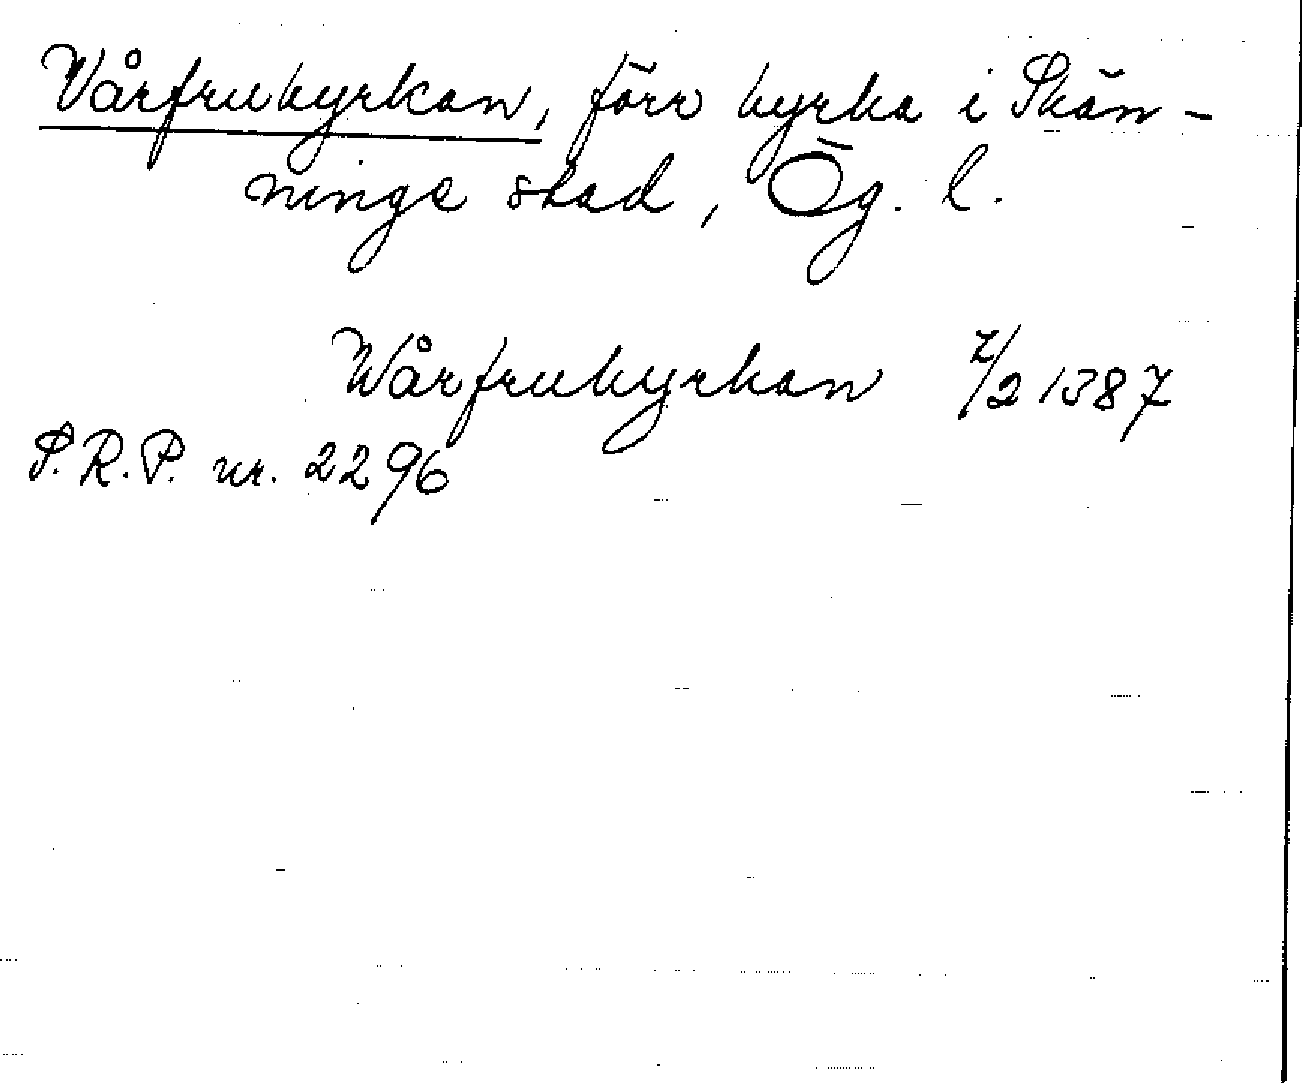 Vårfrukyrkan, förr kyrka i Skän-
ninge stad, Ög. l.
Wårfrukyrkan 7/2 1387
S.R.P. nr. 2296